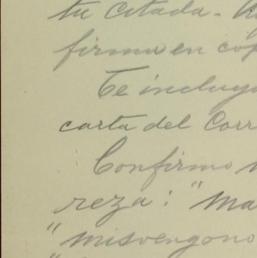 tu citada.
firma en cóp
Te incluyo
carta del Corr
Confirmo
reza: "Ma
"misvengono